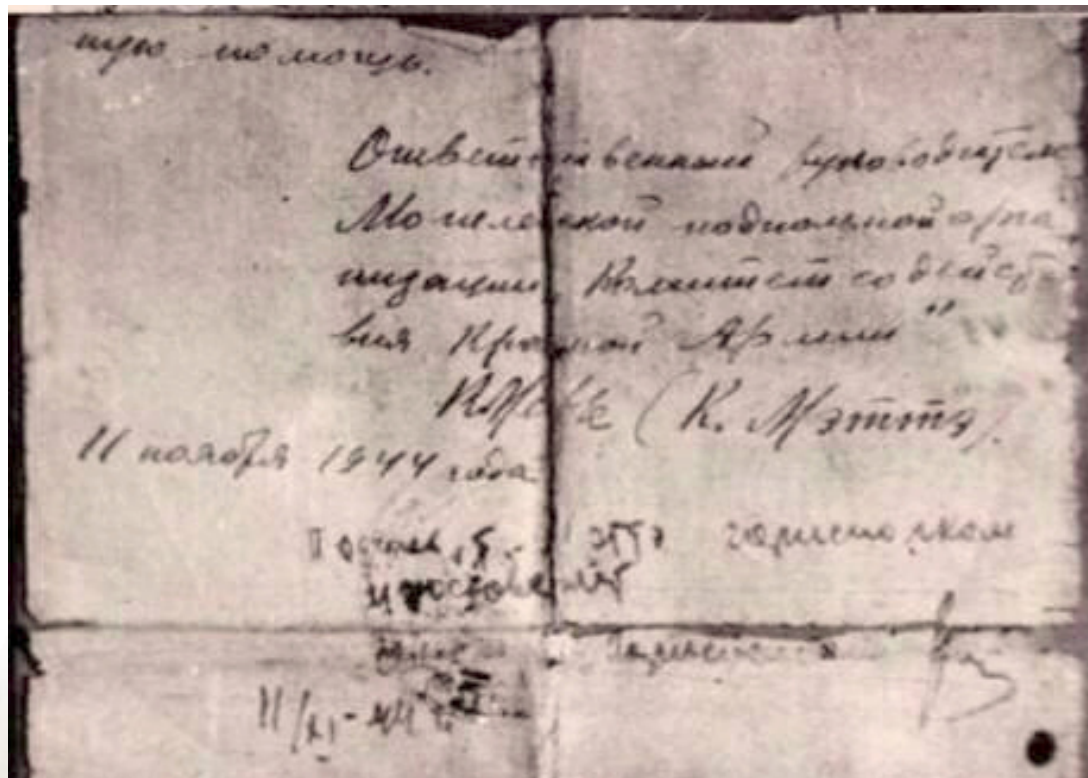 ную помощь.
Ответственный руководитель
Могилевской подпольной орга
низации „Комитет содейст
вия Красной Армии"
(К. Мэттэ).
11 ноября 1944 года
горисполком
удостоверяет
11/XI-44 г.